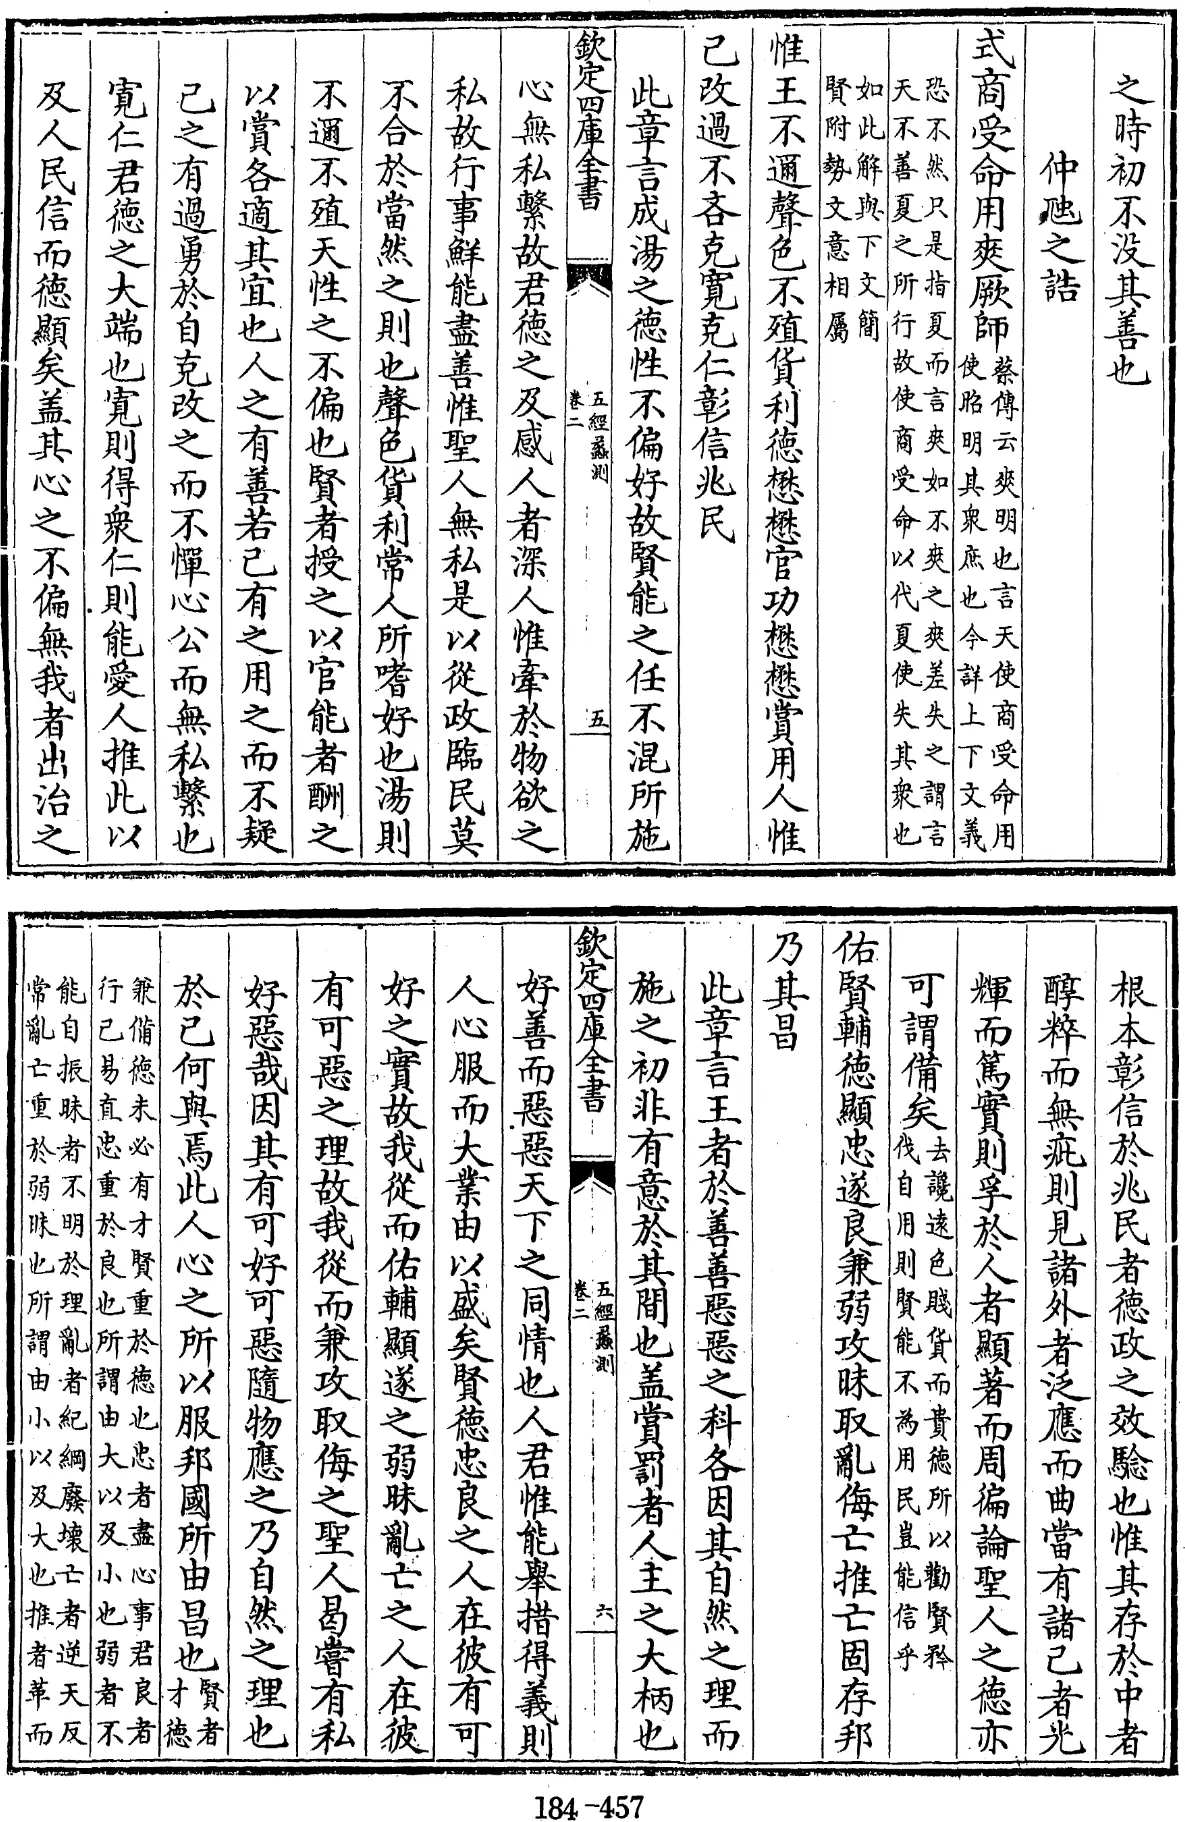 之時初不没其善也
仲虺之誥
式商受命用爽厥師蔡傳云爽明也言天使商受命用
使昭明其衆庶也今詳上下文義
恐不然只是指夏而言爽如不爽之爽差失之謂言
天不善夏之所行故使商受命以代夏使失其衆也
如此解與下文簡
賢附勢文意相屬
惟王不邇聲色不殖貨利德懋懋官功懋懋賞用人惟
己改過不吝克寛克仁彰信兆民
此章言成湯之德性不偏好故賢能之任不混所施
欽定四庫全書
五經蠡測
卷二
五
心無私繫故君德之及感人者深人惟牽於物欲之
私故行事鮮能盡善惟聖人無私是以從政臨民莫
不合於當然之則也聲色貨利常人所嗜好也湯則
不邇不殖天性之不偏也賢者授之以官能者酬之
以賞各適其宜也人之有善若己有之用之而不疑
己之有過勇於自克改之而不憚心公而無私繫也
寛仁君德之大端也寛則得衆仁則能愛人推此以
及人民信而德顯矣盖其心之不偏無我者出治之
根本彰信於兆民者德政之效驗也惟其存於中者
醇粹而無疵則見諸外者泛應而曲當有諸己者光
輝而篤實則孚於人者顯著而周徧論聖人之德亦
可謂備矣去讒逺色賤貨而貴德所以勸賢矜
伐自用則賢能不為用民豈能信乎
佑賢輔德顯忠遂良兼弱攻昧取亂侮亡推亡固存邦
乃其昌
此章言王者於善善惡惡之科各因其自然之理而
施之初非有意於其間也盖賞罰者人主之大柄也
欽定四庫全書
五經蠡測
卷二
六
好善而惡惡天下之同情也人君惟能舉措得義則
人心服而大業由以盛矣賢德忠良之人在彼有可
好之實故我從而佑輔顯遂之弱昧亂亡之人在彼
有可惡之理故我從而兼攻取侮之聖人曷嘗有私
好惡哉因其有可好可惡隨物應之乃自然之理也
於己何與焉此人心之所以服邦國所由昌也賢者
才德
兼備德未必有才賢重於德也忠者盡心事君良者
行己易直忠重於良也所謂由大以及小也弱者不
能自振昧者不明於理亂者紀綱廢壞亡者逆天反
常亂亡重於弱昧也所謂由小以及大也推者革而
184-457